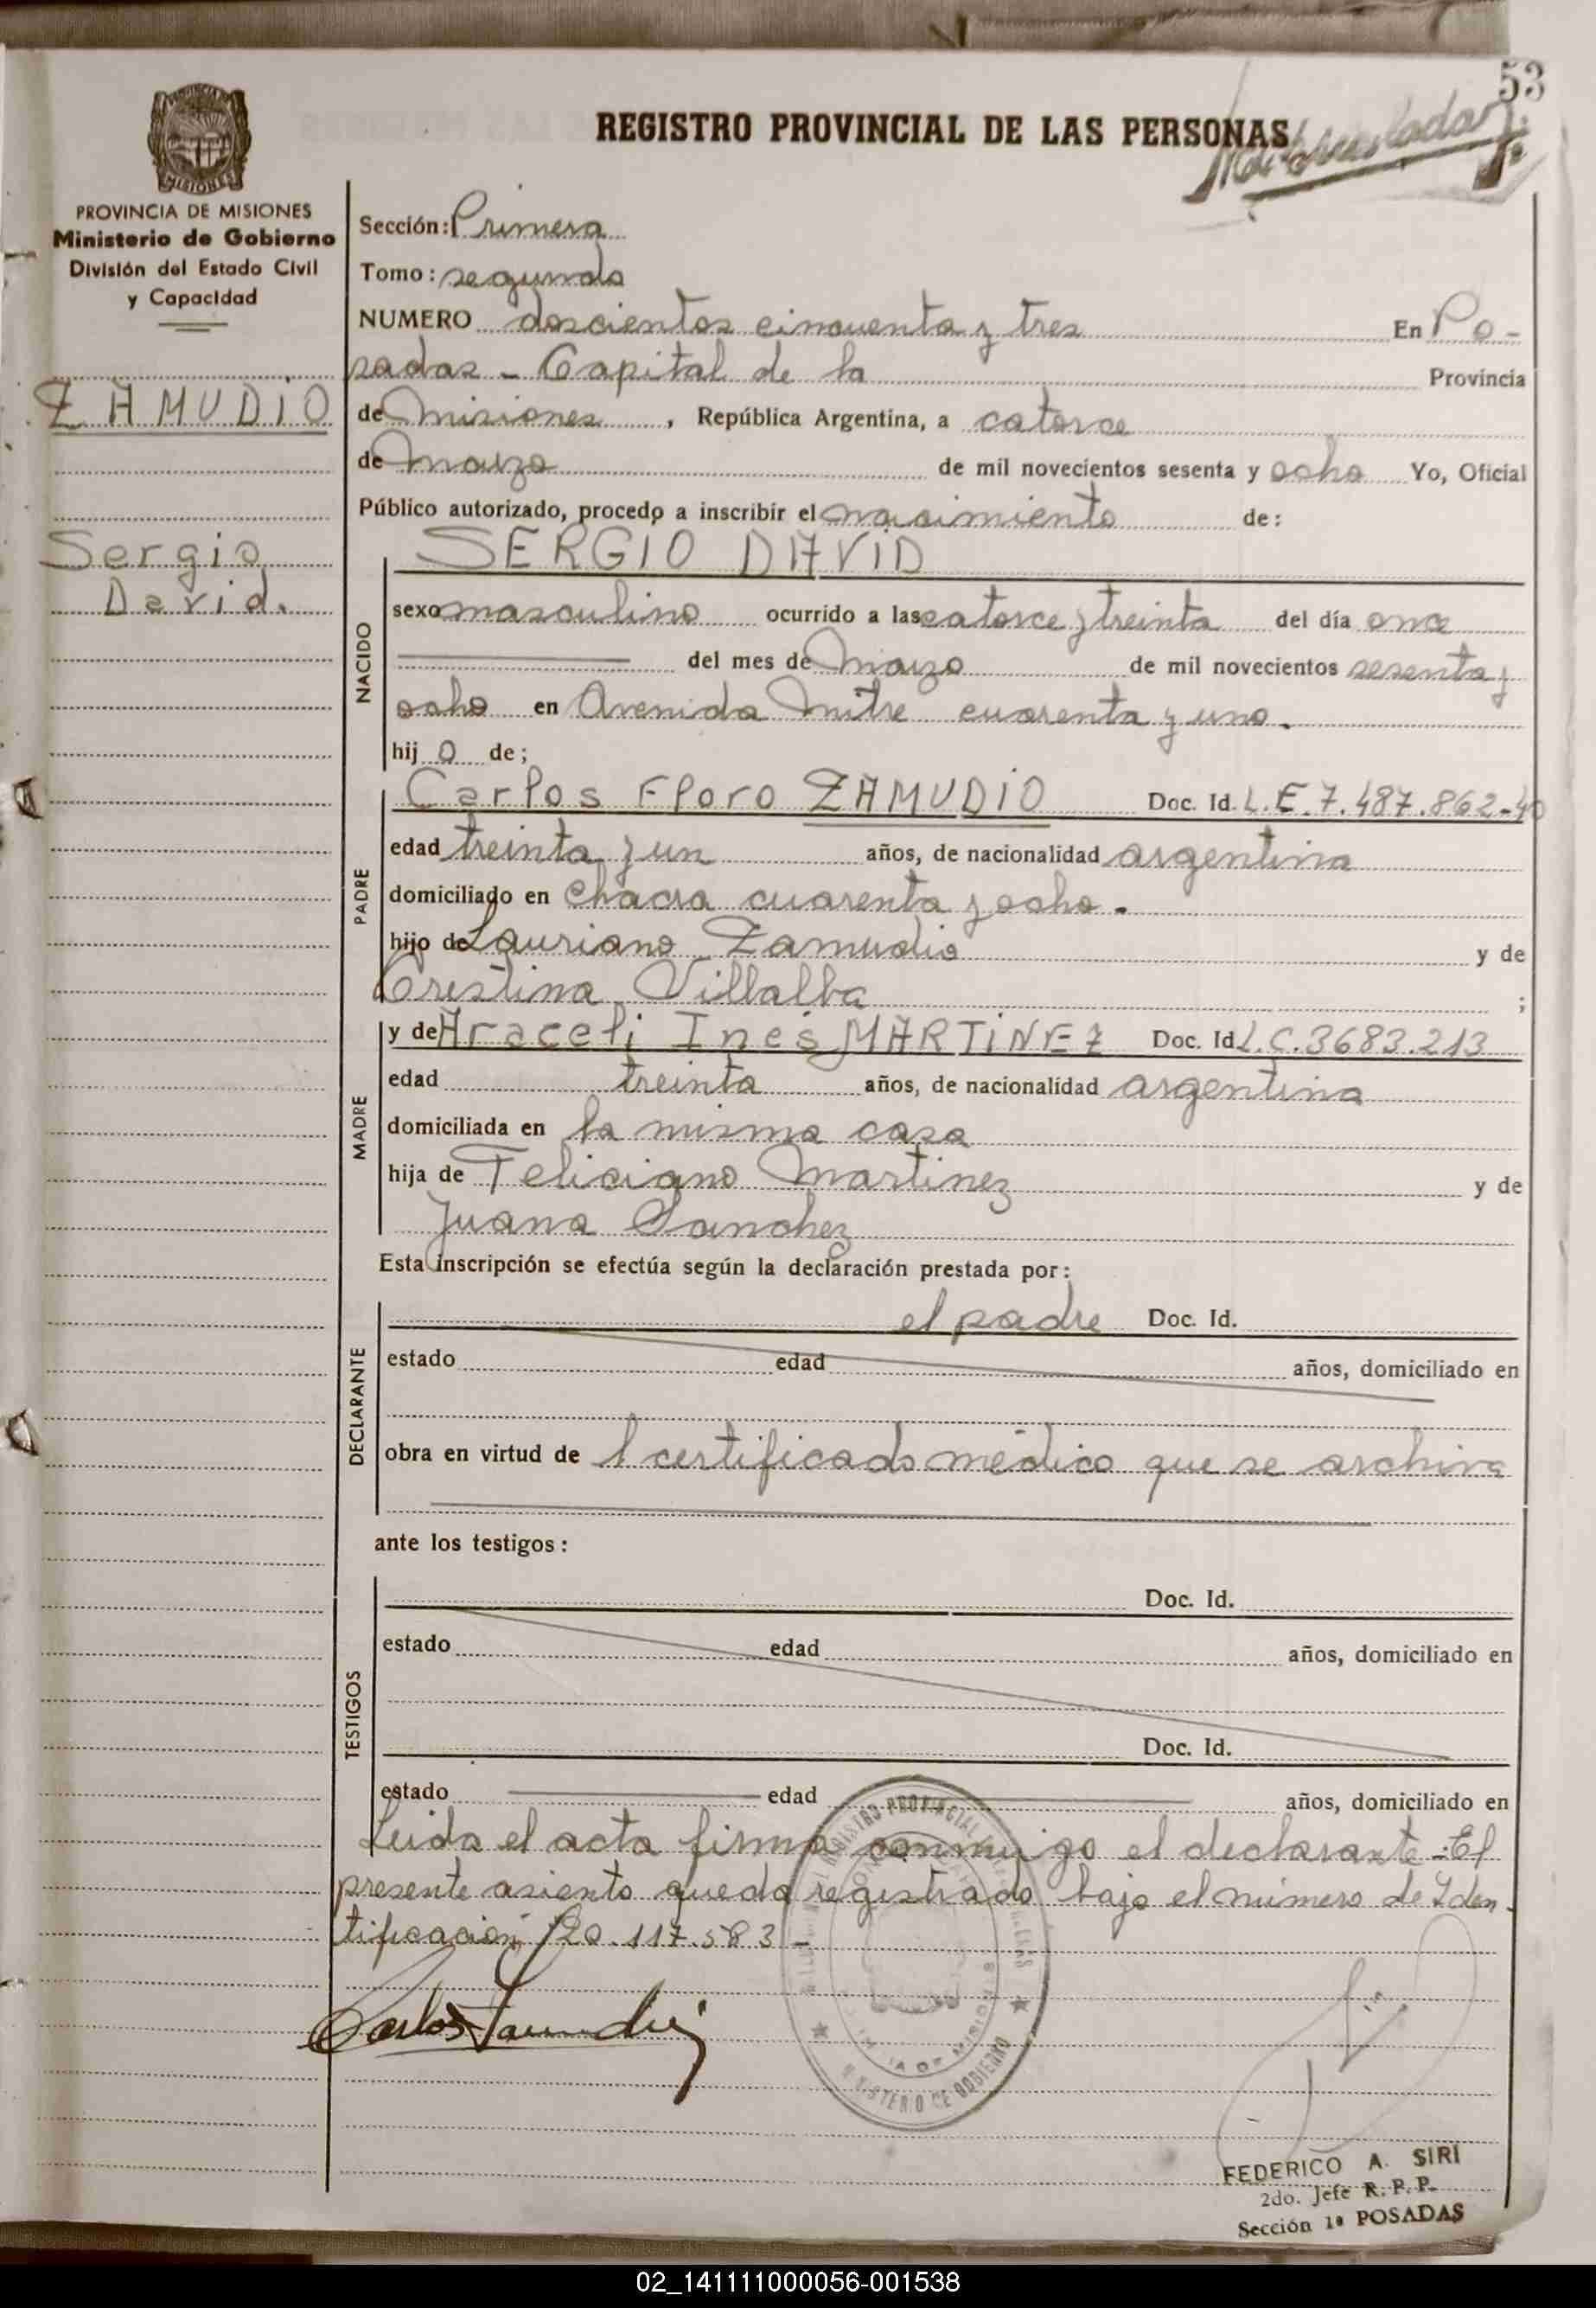 53
REGISTRO PROVINCIAL DE LAS PERSONAS
MISIONES
PROVINCIA DE MISIONES
Ministerio de Gobierno
División del Estado Civil
y Capacidad
ZAMUDIO
Sergio
David.
Sección: Primera
Tomo: segundo
NUMERO doscientos cincuenta y tres En Po-
sadas - Capital de la Provincia
de Misiones, República Argentina, a catorce
de marzo de mil novecientos sesenta y ocho Yo, Oficial
Público autorizado, procedo a inscribir el nacimiento de:
NACIDO
SERGIO DAVID
sexo masculino ocurrido a las catorce y treinta del día once
del mes de Marzo de mil novecientos sesenta y
ocho en Avenida Mitre cuarenta y uno.
hijo de;
PADRE
Carlos Floro ZAMUDIO Doc. Id. L.E.7.487.862-40
edad treinta y un años, de nacionalidad argentina
domiciliado en Chacra cuarenta y ocho.
hijo de Lauriano Zamudio y de
Crestina Villalba ;
MADRE
y de Araceli Inés MARTINEZ Doc. Id L.C.3683.213
edad treinta años, de nacionalidad argentina
domiciliada en la misma casa
hija de Feliciano Martinez y de
Juana Sanchez
Esta inscripción se efectúa según la declaración prestada por:
DECLARANTE
el padre Doc. Id.
estado edad años, domiciliado en
obra en virtud de l certificado médico que se archiva
ante los testigos:
TESTIGOS
Doc. Id.
estado edad años, domiciliado en
Doc. Id.
estado edad años, domiciliado en
Leida el acta firma conmigo el declarante - El
presente asiento queda registrado bajo el número de Iden
tificación 20.117.583 -
Carlos Zamudio
REGISTRO PROVINCIAL
MINISTERIO DE GOBIERNO
FEDERICO A. SIRI
2do. Jefe R. P. P.
Sección 1ª POSADAS
02_141111000056-001538